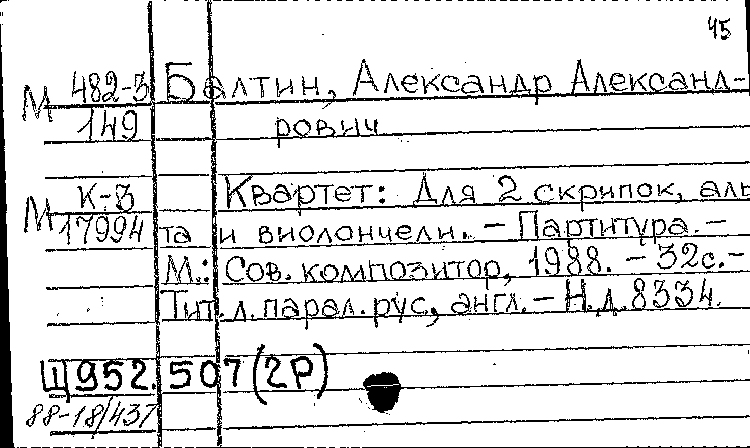 45
М 482-3 Балтин, Александр Александ-
149 рович
М К-3 Квартет: Для 2 скрипок, аль
17994 та и виолончели. – Партитура. –
М.: Сов. композитор, 1988. – 32с. –
Тит. л. парал. рус, англ. – Н.д. 8334.
Щ952.507(2Р)
88-18/437